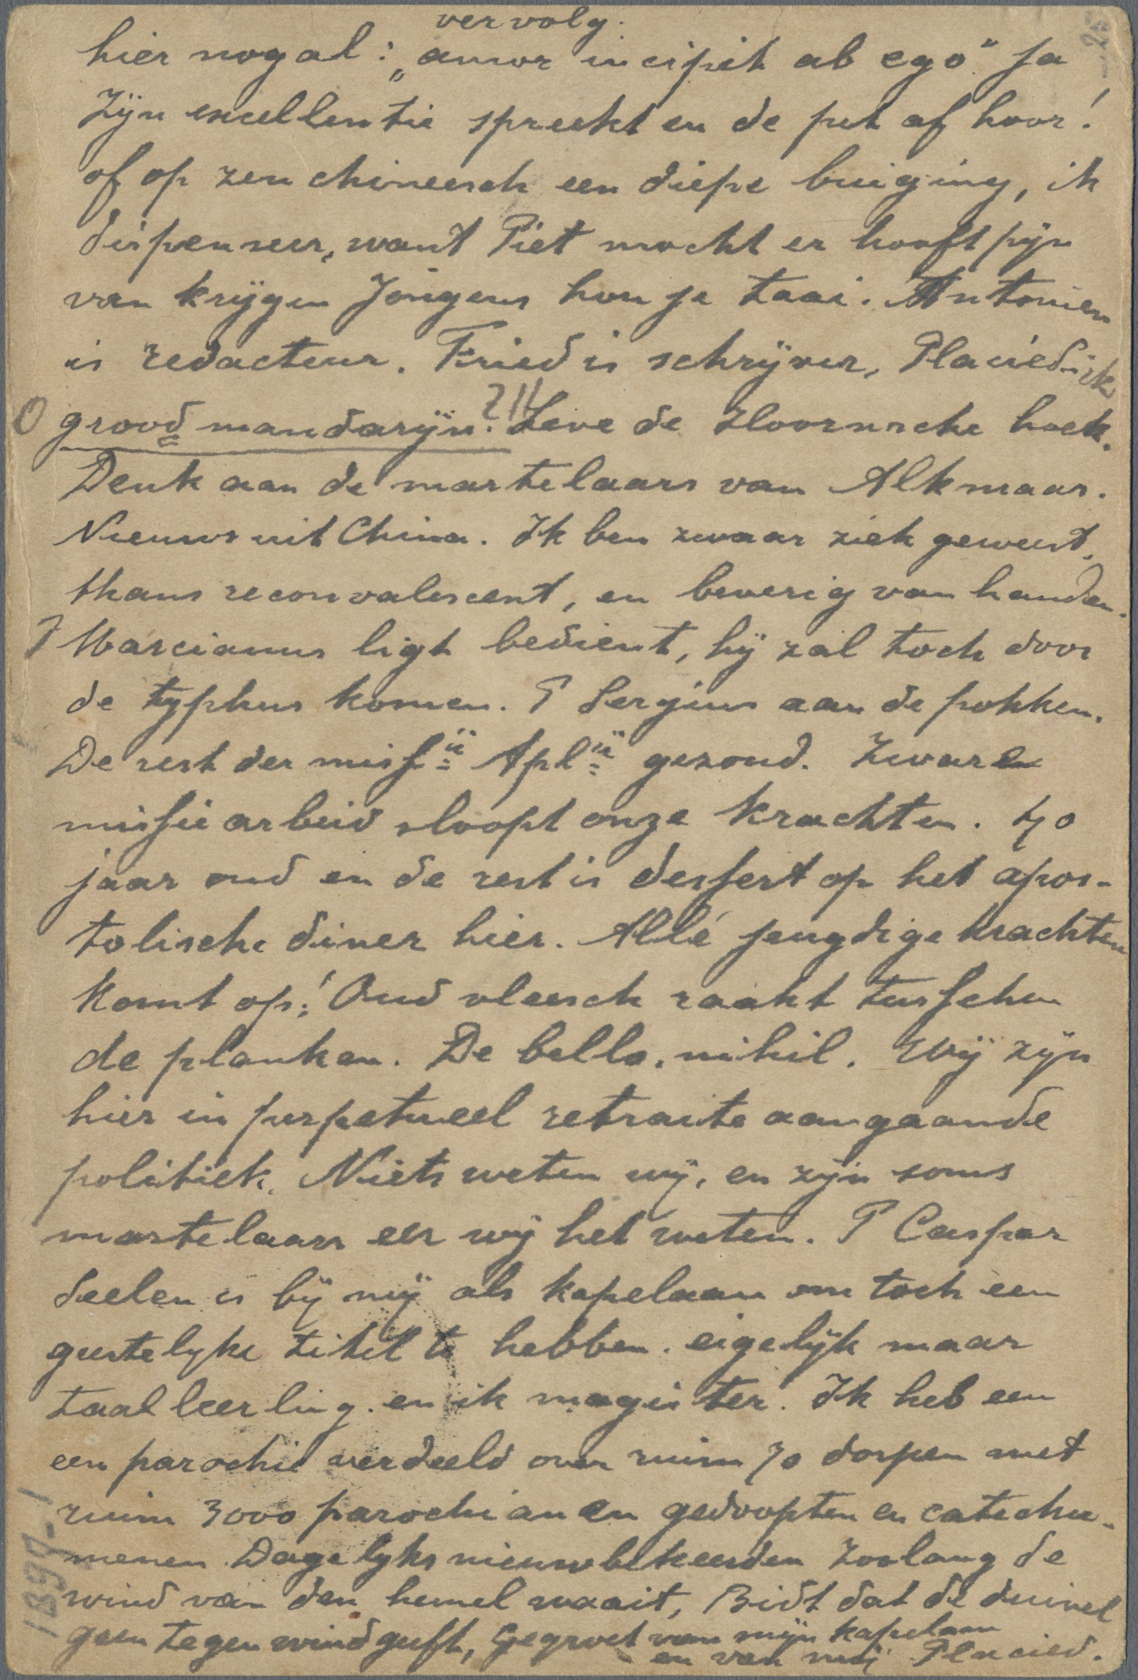 vervolg.
hier nogal: „amor incipit ab ego" Ja
Zijn excellentie spreekt en de pet af hoor!
of op zen chineesch een diepe buiging, ik
dispenseer, want Piet mocht er hooftpijn
van krijgen Jongens hou je taai. Antonien
is redacteur. Fried is schrijver, Placied ik
groovd mandarijn. ZH Leve de Hoornsche hoek.
Denk aan de martelaars van Alkmaar.
Nieuws uit China. Ik ben zwaar ziek geweest,
thans reconvalescent, en beverig van handen.
P Marcianus ligt bedient, hij zal toch door
de typhus komen. P Sergius aan de pokken.
De rest der missii Aplii gezond. Zware
missiearbeid sloopt onze krachten. 40
jaar oud en de rest is dessert op het apos-
tolische diner hier. Allé jeugdige krachten
komt op! Oud vleesch raakt tusschen
de planken. De bello, nihil. Wij zijn
hier in perpetueel retraite aangaande
politiek. Niets weten wij, en zijn soms
martelaars eer wij het weten. P Caspar
Seelen is bij mij als kapelaan om toch een
geestelyke titel te hebben. eigelijk maar
taalleerling. en ik magister. Ik heb een
een parochie verdeeld over ruim 70 dorpen met
ruim 3000 parochianen gedoopten en catechu-
menen. Dagelyks nieuwbekeerden Zoolang de
wind van den hemel waait, Bidt dat de duivel
geen tegenwind geeft, Gegroet van mijn kapelaan
en van mij Placied.
1899-1
25